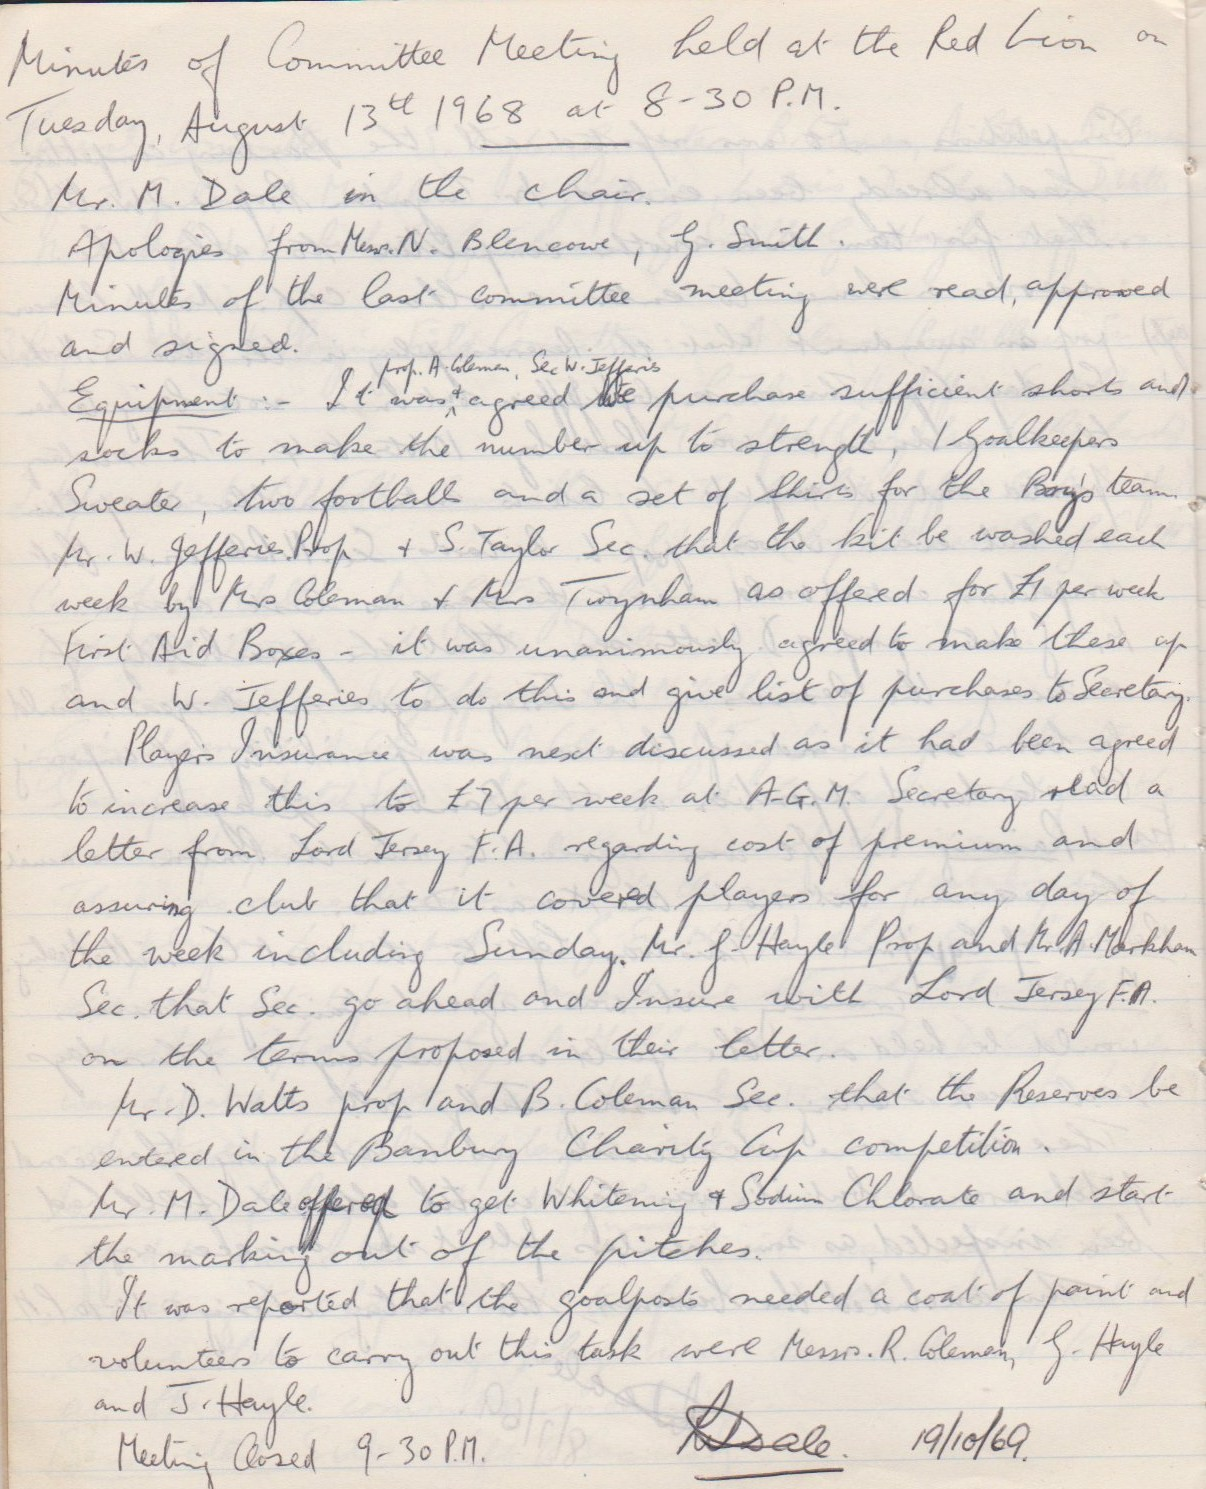 Minutes of Committee Meeting held at the Red Lion on
Tuesday, August 13th 1968 at 8-30 P.M.
Mr. M. Dale in the chair.
Apologies from Messrs. N. Blencowe, G. Smith.
Minutes of the last committee meeting were read, approved
and signed.
prop. A. Coleman, Sec W. Jefferis
Equipment :- It was & agreed to purchase sufficient shorts and
socks to make the number up to strength, 1 Goalkeepers
Sweater, two footballs and a set of shirts for the Boy's team.
Mr. W. Jefferies Prop & S. Taylor Sec. that the kit be washed each
week by Mrs Coleman & Mrs Twynham as offered for £1 per week
First Aid Boxes - it was unanimously agreed to make these up
and W. Jefferies to do this and give list of purchases to Secretary.
Players Insurance was next discussed as it had been agreed
to increase this to £7 per week at A.G.M. Secretary read a
letter from Lord Jersey F.A. regarding cost of premium and
assuring club that it covered players for any day of
the week including Sunday. Mr. G. Hayle Prop and Mr A. Markham
Sec. that Sec. go ahead and Insure with Lord Jersey F.A.
on the terms proposed in their letter.
Mr. D. Watts prop and B. Coleman Sec. that the Reserves be
entered in the Banbury Charity Cup competition.
Mr. M. Dale offered to get Whitening & Sodium Chlorate and start
the marking out of the pitches.
It was reported that the goalposts needed a coat of paint and
volunteers to carry out this task were Messrs. R. Coleman, G. Hayle
and J. Hayle.
Meeting Closed 9-30 P.M. MDale. 19/10/69.